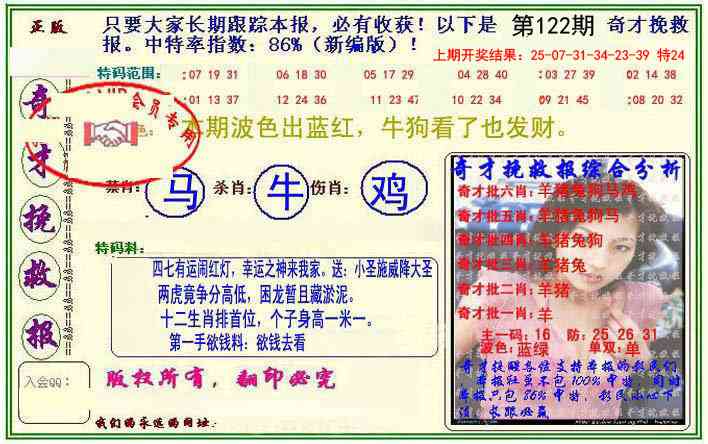 正版
只要大家长期跟踪本报，必有收获！以下是 第122期 奇才挽救
报。中特率指数：86%（新编版）！
上期开奖结果：25-07-31-34-23-39 特24
特码范围：:07 19 31 06 18 30 05 17 29 04 28 40 :03 27 39 02 14 38
:01 13 37 12 24 36 11 23 47 10 22 34 09 21 45 :08 20 32
VIP会员专用
本期波色出蓝红，牛狗看了也发财。
奇才挽救报
禁肖：马 杀肖：牛 伤肖：鸡
特码料：
四七有运闹红灯，幸运之神来我家。送：小圣施威降大圣
两虎竟争分高低，困龙暂且藏淤泥。
十二生肖排首位，个子身高一米一。
第一手欲钱料：欲钱去看
奇才挽救报综合分析
奇才批六肖：羊猪兔狗马鸡
奇才批五肖：羊猪兔狗马
奇才批四肖：羊猪兔狗
奇才批三肖：羊猪兔
奇才批二肖：羊猪
奇才批一肖：羊
主一码：16 防：25 26 31
波色：蓝绿 单双：单
奇才提醒各位支持本报的彩民们
本报社虽不包100%中特，同时
本报只包86%中特，彩民小心下
注，长跟必赢
入会QQ：
版权所有，翻印必究
我们的永远的网址：